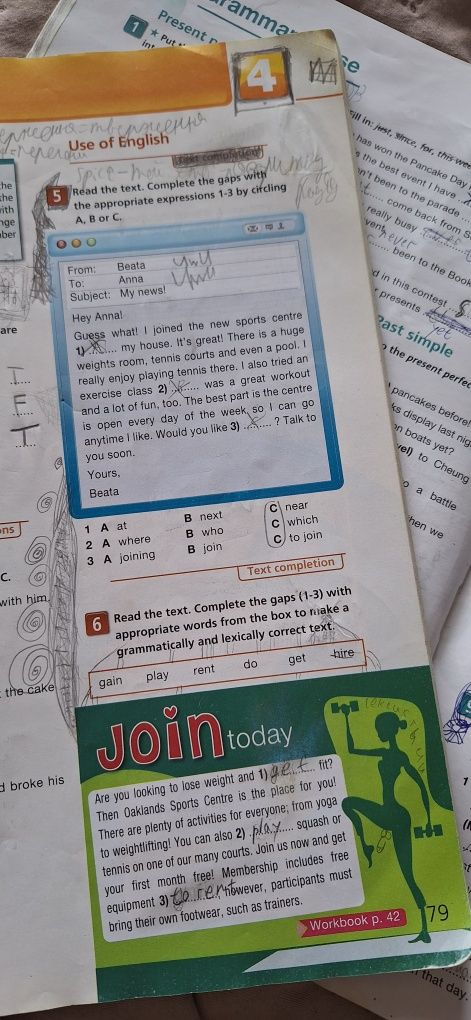 4
Use of English
Text completion
5 Read the text. Complete the gaps with
the appropriate expressions 1-3 by circling
A, B or C.
From: Beata
To: Anna
Subject: My news!
Hey Anna!
Guess what! I joined the new sports centre
1) ........ my house. It's great! There is a huge
weights room, tennis courts and even a pool. I
really enjoy playing tennis there. I also tried an
exercise class 2) ........ was a great workout
and a lot of fun, too. The best part is the centre
is open every day of the week so I can go
anytime I like. Would you like 3) ........ ? Talk to
you soon.
Yours,
Beata
1 A at B next C near
2 A where B who C which
3 A joining B join C to join
Text completion
6 Read the text. Complete the gaps (1-3) with
appropriate words from the box to make a
grammatically and lexically correct text.
gain play rent do get hire
Join today
Are you looking to lose weight and 1) get fit?
Then Oaklands Sports Centre is the place for you!
There are plenty of activities for everyone; from yoga
to weightlifting! You can also 2) play squash or
tennis on one of our many courts. Join us now and get
your first month free! Membership includes free
equipment 3) to rent, however, participants must
bring their own footwear, such as trainers.
Workbook p. 42
79
are
T
F
T
C.
with him
the cake
d broke his
1
Present
Put
ill in: just, since, for, this week
has won the Pancake Day
s the best event I have
n't been to the parade
come back from S
really busy
never
been to the Book
d in this contest
presents
yet
Past simple
the present perfe
pancakes before!
ks display last nig
on boats yet?
vel) to Cheung
o a battle
hen we
that day